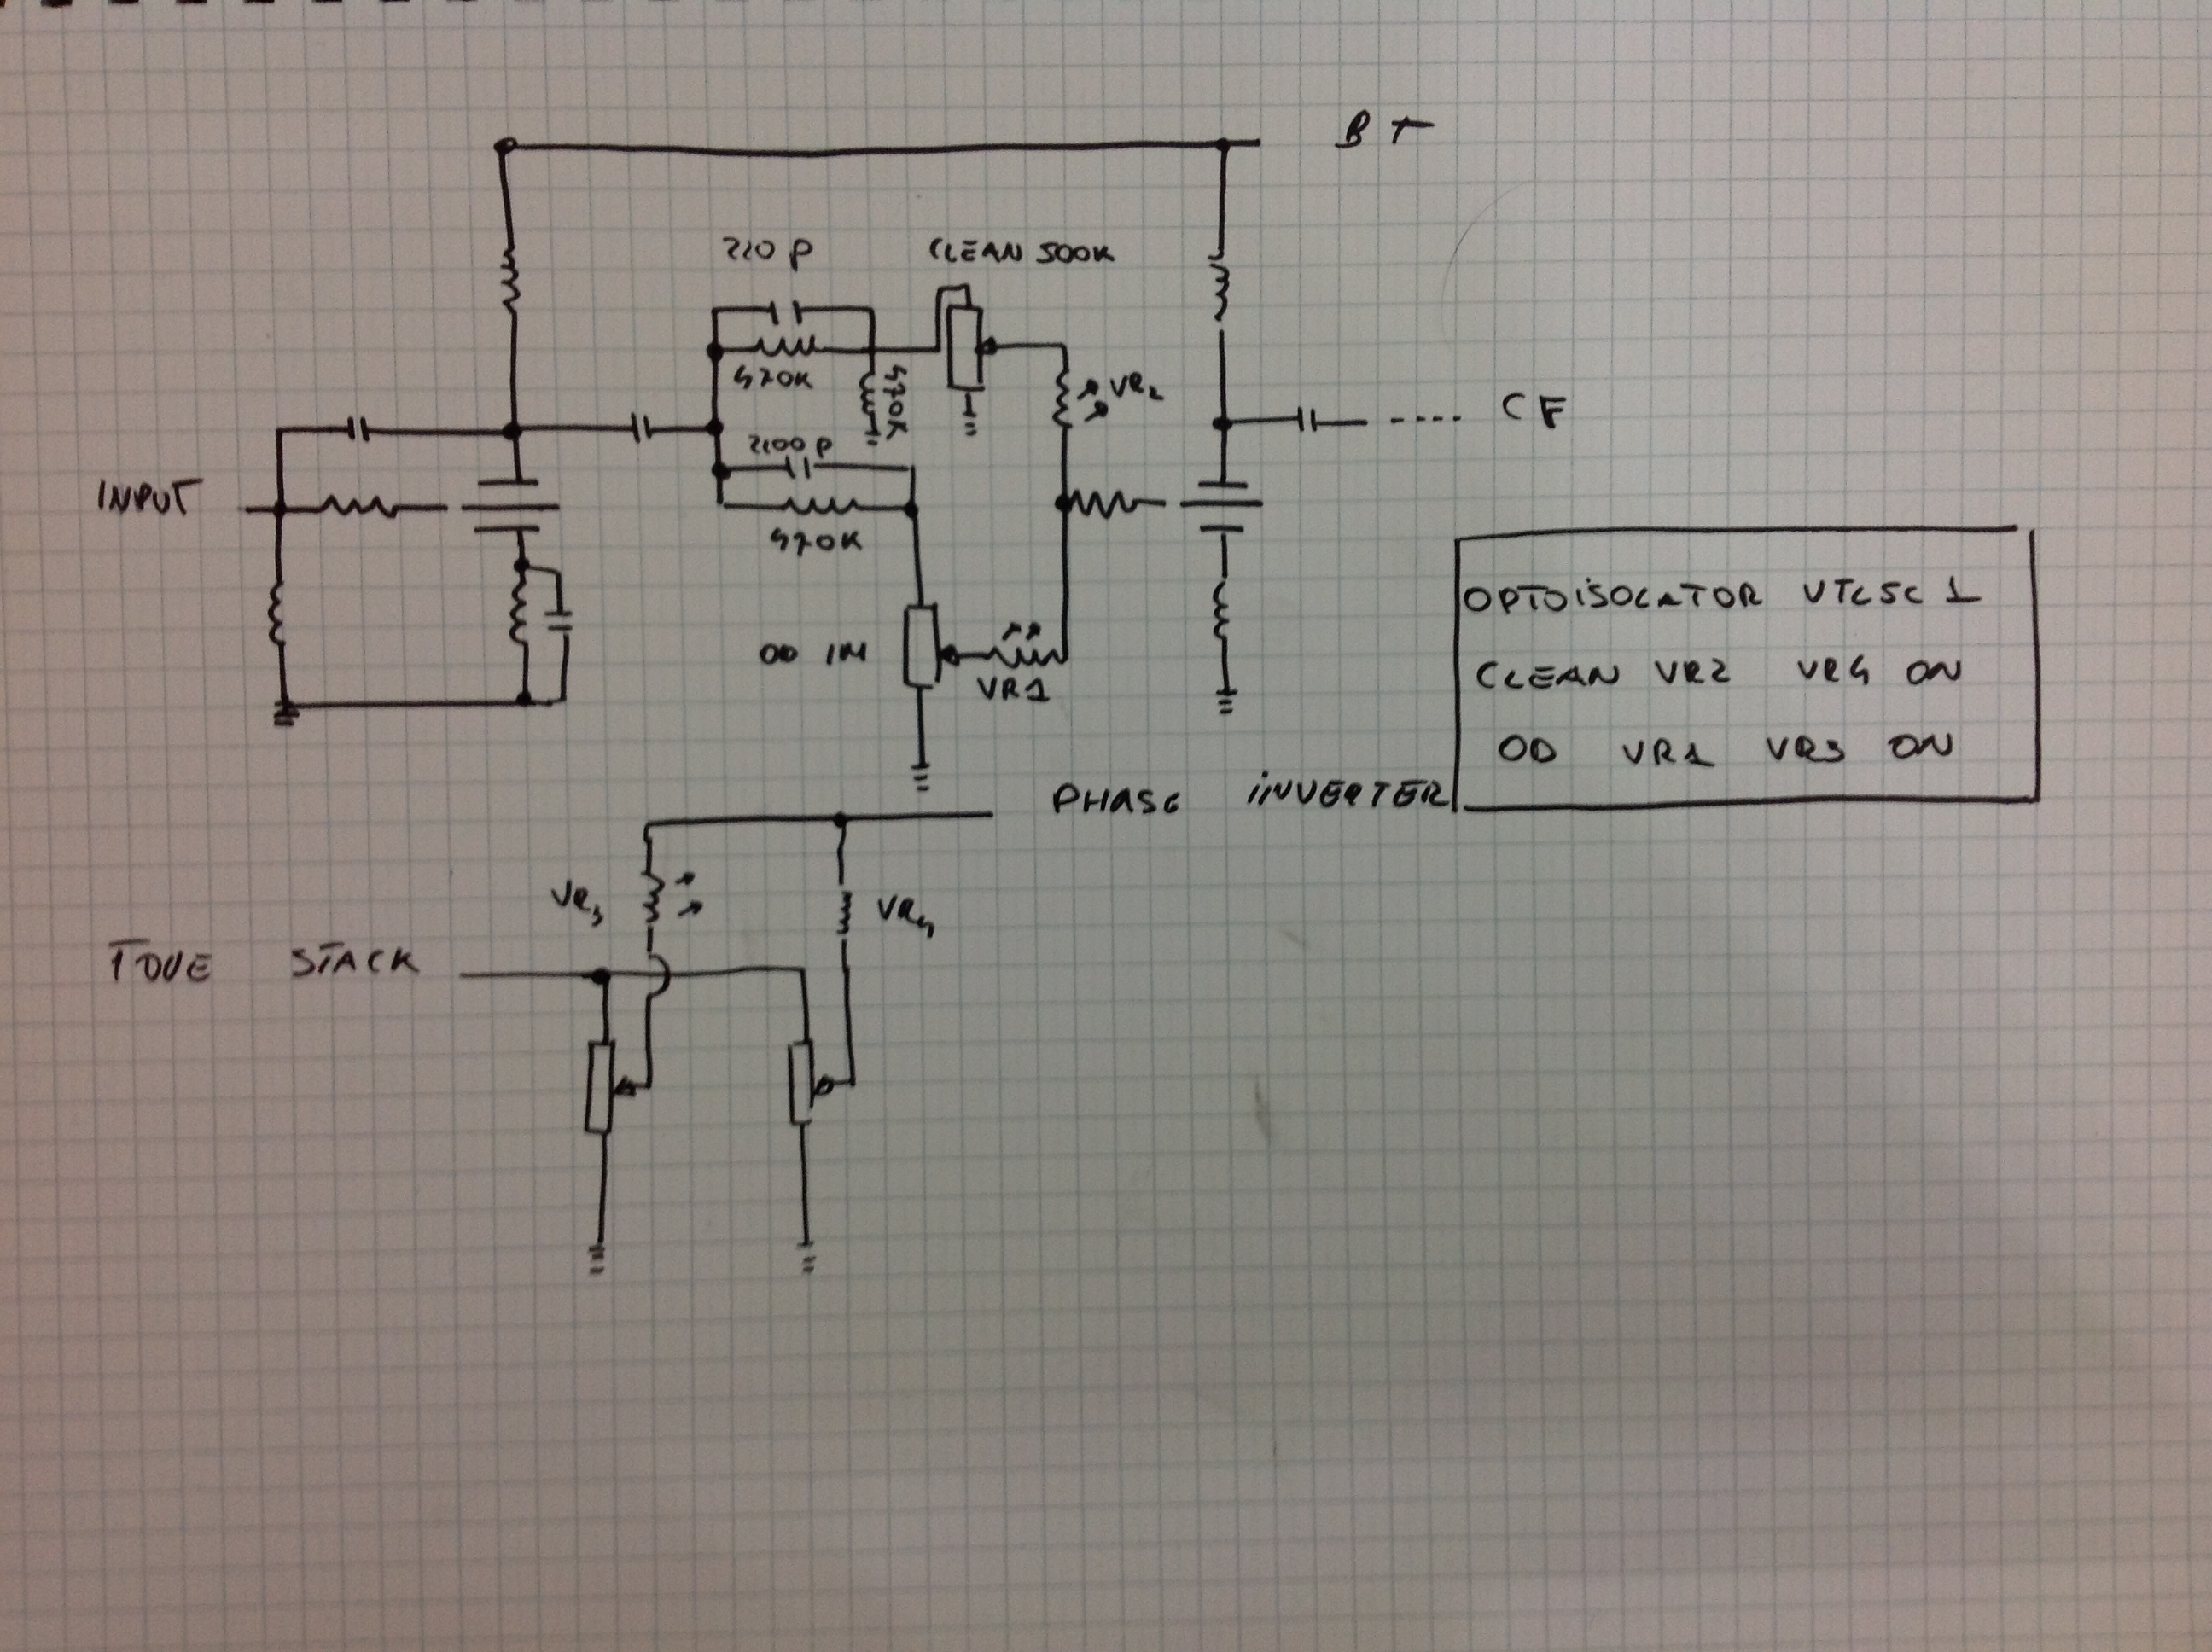 B+
220 P
CLEAN 500K
470K
470K
VR2
CF
2200 P
INPUT
470K
OD 1M
VR1
OPTOISOLATOR VTL5C1
CLEAN VR2 VR4 ON
OD VR1 VR3 ON
PHASE INVERTER
VR3
VR4
TONE STACK